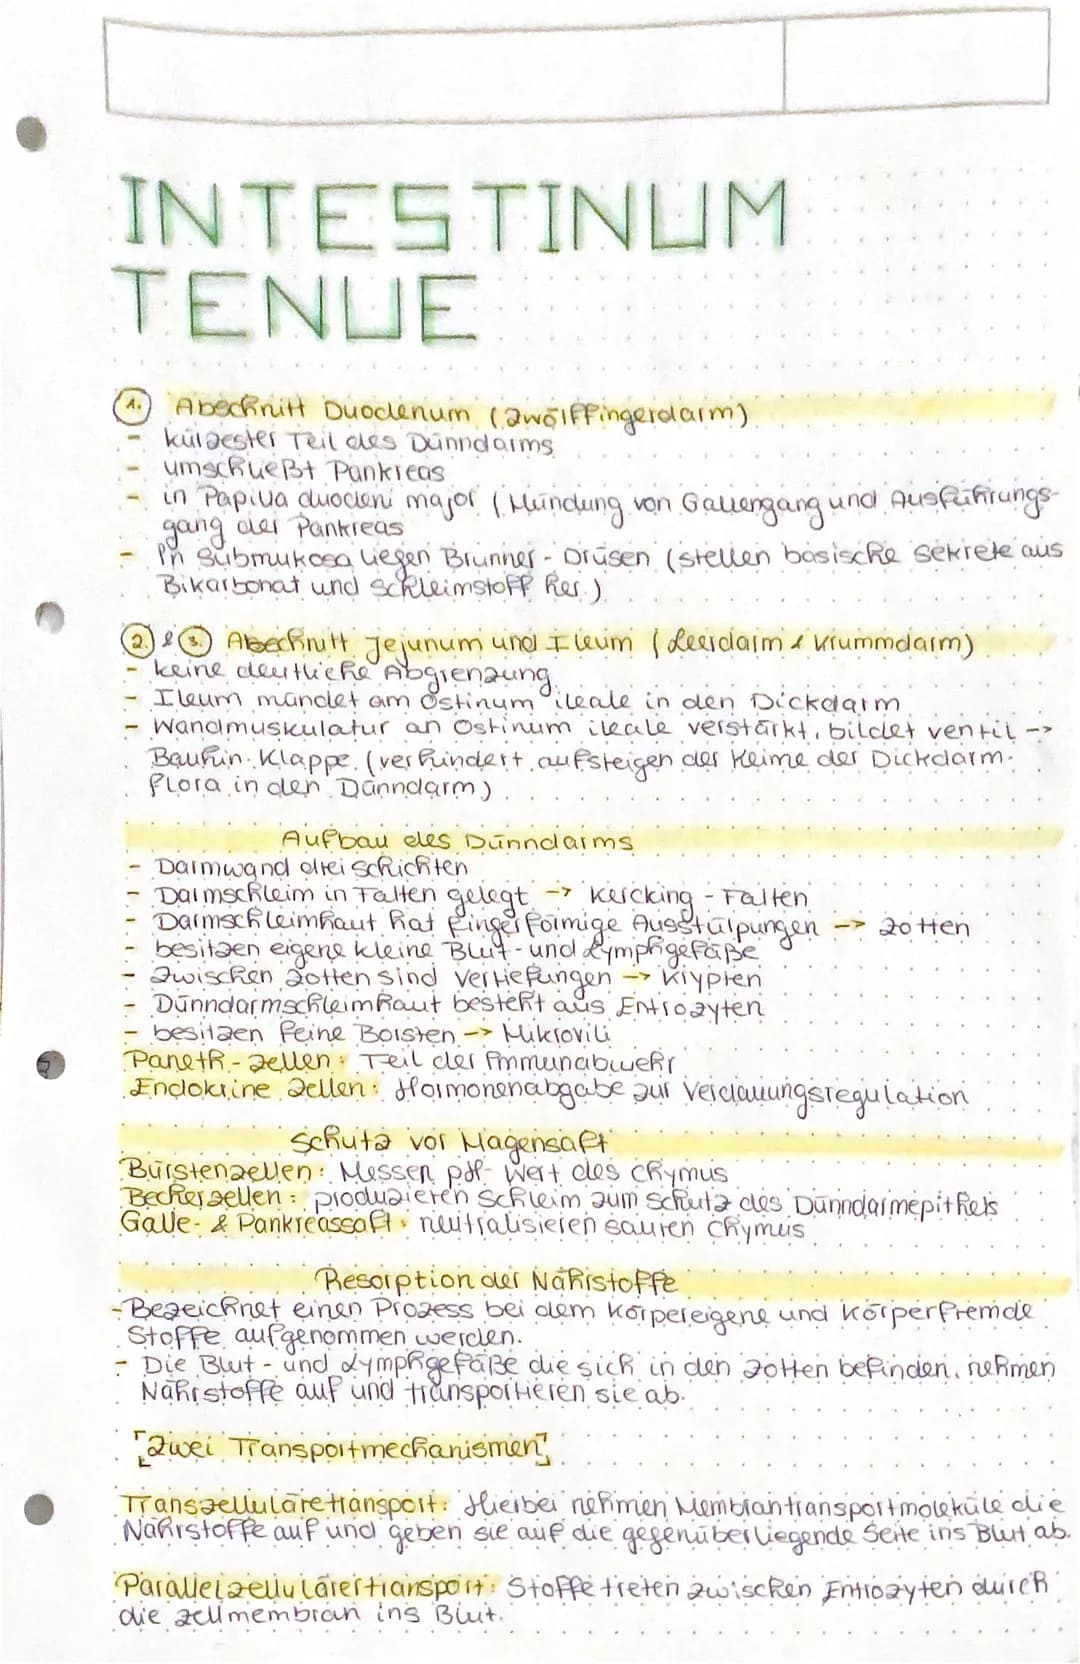 INTESTINUM
TENUE
1. Abschnitt Duodenum (Zwölffingerdarm)
- kürzester Teil des Dünndarms
- umschließt Pankreas
- in Papilla duodeni major (Mündung von Gallengang und Ausführungs-
gang der Pankreas
- In Submukosa liegen Brunner-Drüsen (stellen basische Sekrete aus
Bikarbonat und Schleimstoff her.)
2. & 3. Abschnitt Jejunum und Ileum (Leerdarm & Krummdarm)
- keine deutliche Abgrenzung
- Ileum mündet am Ostinum ileale in den Dickdarm
- Wandmuskulatur an Ostinum ileale verstärkt, bildet ventil ->
Bauhin-Klappe (verhindert aufsteigen der Keime der Dickdarm-
flora in den Dünndarm)
Aufbau des Dünndarms
- Darmwand drei Schichten
- Darmschleim in Falten gelegt -> Kercking-Falten
- Darmschleimhaut hat fingerförmige Ausstülpungen -> Zotten
- besitzen eigene kleine Blut- und Lymphgefäße
- Zwischen Zotten sind Vertiefungen -> Krypten
- Dünndarmschleimhaut besteht aus Entrozyten
- besitzen feine Borsten -> Mikrovili
Paneth-Zellen: Teil der Immunabwehr
Endokrine Zellen: Hormonenabgabe zur Verdauungsregulation
Schutz vor Magensaft
Bürstenzellen: Messen pH-Wert des Chymus
Becherzellen: produzieren Schleim zum Schutz des Dünndarmepithels
Galle- & Pankreassaft: neutralisieren sauren Chymus
Resorption der Nährstoffe
- Bezeichnet einen Prozess bei dem körpereigene und körperfremde
Stoffe aufgenommen werden.
- Die Blut- und Lymphgefäße die sich in den Zotten befinden, nehmen
Nährstoffe auf und transportieren sie ab.
[Zwei Transportmechanismen]
Transzelluläretransport: Hierbei nehmen Membrantransportmoleküle die
Nährstoffe auf und geben sie auf die gegenüberliegende Seite ins Blut ab.
Parallelzellulärertransport: Stoffe treten zwischen Entrozyten durch
die Zellmembran ins Blut.